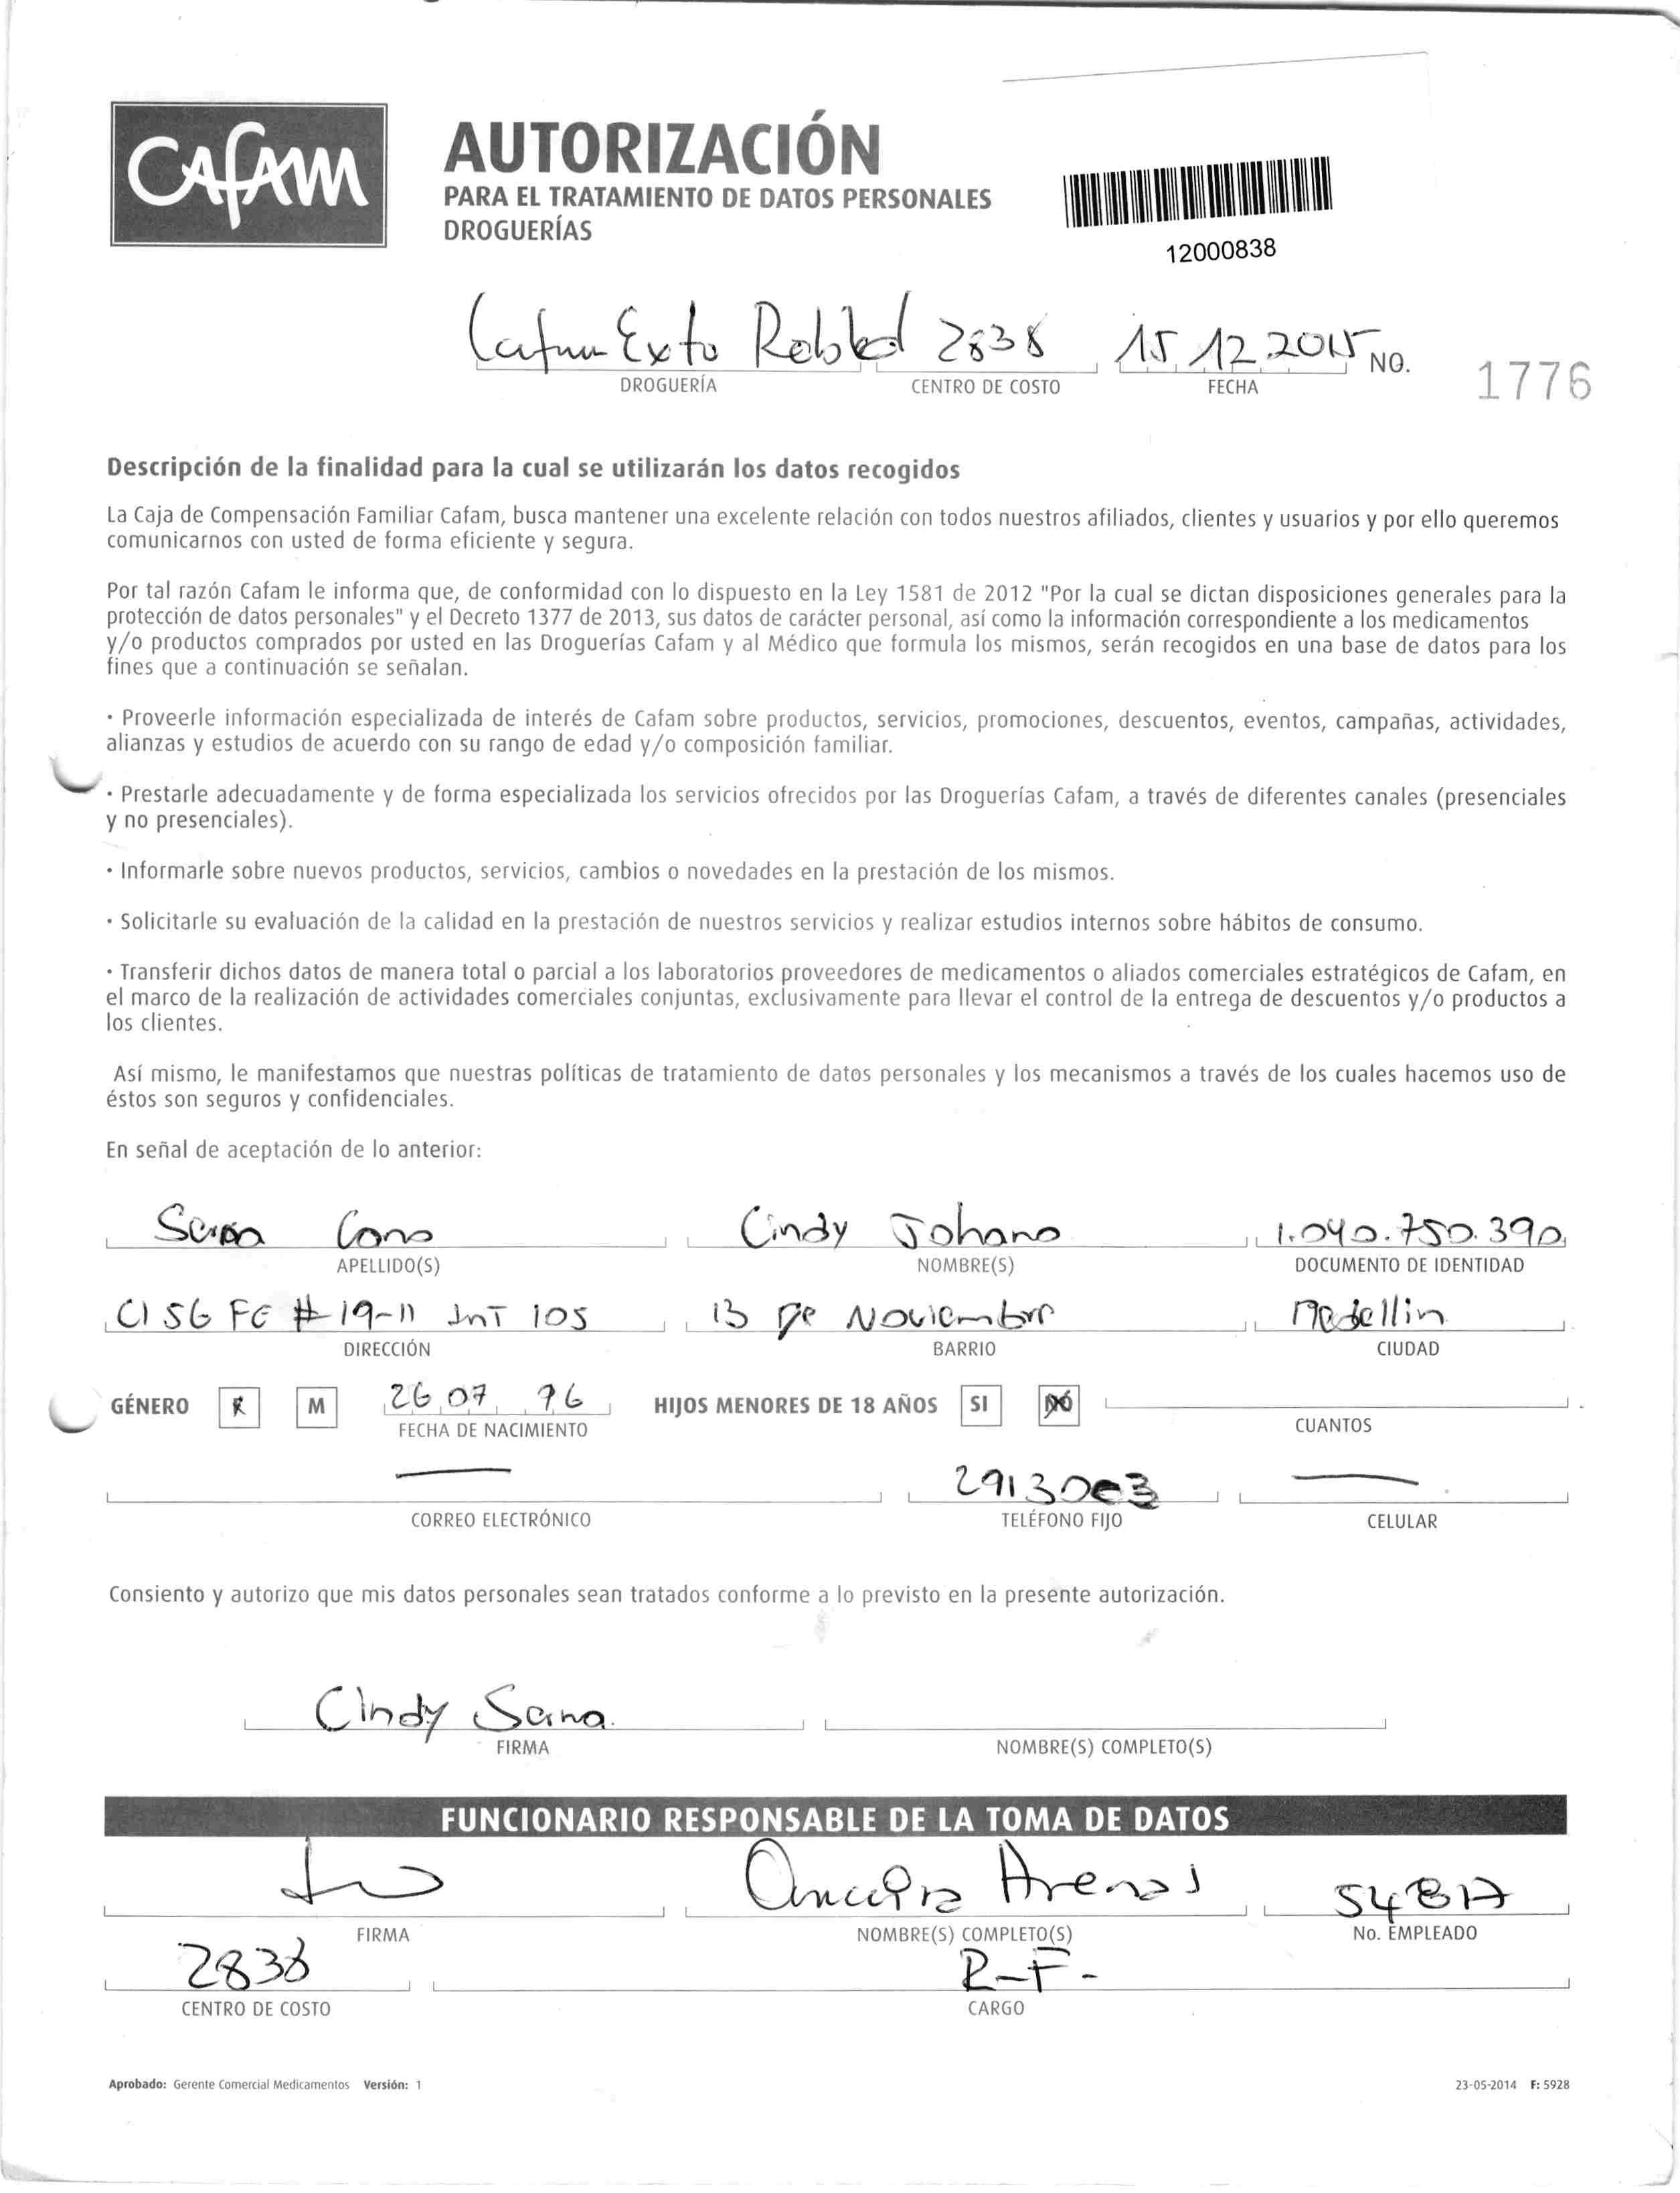 CAFAM
AUTORIZACIÓN
PARA EL TRATAMIENTO DE DATOS PERSONALES
DROGUERÍAS
12000838
Exto 2838 15 12 2015 NO. 1776
DROGUERÍA CENTRO DE COSTO FECHA
Descripción de la finalidad para la cual se utilizarán los datos recogidos
La Caja de Compensación Familiar Cafam, busca mantener una excelente relación con todos nuestros afiliados, clientes y usuarios y por ello queremos
comunicarnos con usted de forma eficiente y segura.
Por tal razón Cafam le informa que, de conformidad con lo dispuesto en la Ley 1581 de 2012 "Por la cual se dictan disposiciones generales para la
protección de datos personales" y el Decreto 1377 de 2013, sus datos de carácter personal, así como la información correspondiente a los medicamentos
y/o productos comprados por usted en las Droguerías Cafam y al Médico que formula los mismos, serán recogidos en una base de datos para los
fines que a continuación se señalan.
· Proveerle información especializada de interés de Cafam sobre productos, servicios, promociones, descuentos, eventos, campañas, actividades,
alianzas y estudios de acuerdo con su rango de edad y/o composición familiar.
· Prestarle adecuadamente y de forma especializada los servicios ofrecidos por las Droguerías Cafam, a través de diferentes canales (presenciales
y no presenciales).
· Informarle sobre nuevos productos, servicios, cambios o novedades en la prestación de los mismos.
· Solicitarle su evaluación de la calidad en la prestación de nuestros servicios y realizar estudios internos sobre hábitos de consumo.
· Transferir dichos datos de manera total o parcial a los laboratorios proveedores de medicamentos o aliados comerciales estratégicos de Cafam, en
el marco de la realización de actividades comerciales conjuntas, exclusivamente para llevar el control de la entrega de descuentos y/o productos a
los clientes.
Así mismo, le manifestamos que nuestras políticas de tratamiento de datos personales y los mecanismos a través de los cuales hacemos uso de
éstos son seguros y confidenciales.
En señal de aceptación de lo anterior:
Cano Cindy Johana 1.040.750.390
APELLIDO(S) NOMBRE(S) DOCUMENTO DE IDENTIDAD
Cl 56 FE # 19-11 InT 105 13 De Noviembre Medellin
DIRECCIÓN BARRIO CIUDAD
GÉNERO F M 26 07 96 HIJOS MENORES DE 18 AÑOS SI NO
FECHA DE NACIMIENTO CUANTOS
CORREO ELECTRÓNICO TELÉFONO FIJO CELULAR
Consiento y autorizo que mis datos personales sean tratados conforme a lo previsto en la presente autorización.
Cindy
FIRMA NOMBRE(S) COMPLETO(S)
FUNCIONARIO RESPONSABLE DE LA TOMA DE DATOS
Arenas
FIRMA NOMBRE(S) COMPLETO(S) No. EMPLEADO
2838 R-F-
CENTRO DE COSTO CARGO
Aprobado: Gerente Comercial Medicamentos Versión: 1 23-05-2014 F: 5928